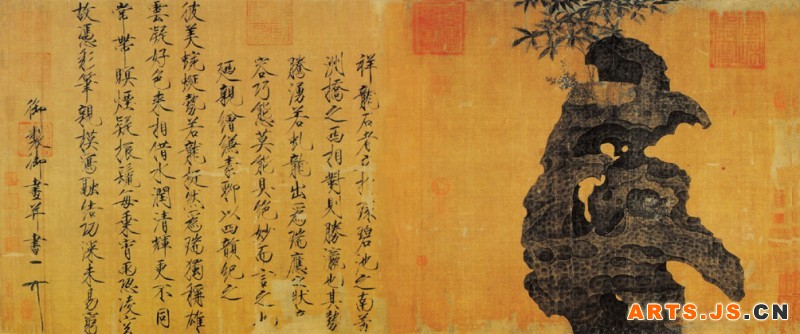 祥龍石者立於環碧池之南芳
洲橋之西相對則勝瀛也其勢
騰湧若虬龍出為瑞應之狀奇
容巧態莫能具絕妙而言之也
廼親繪縑素聊以四韻紀之
彼美蜿蜒勢若龍挺然為瑞獨稱雄
雲凝好色來相借水潤清輝更不同
常帶暝煙疑振鬣每乘宵雨恐凌空
故憑彩筆親模寫融結功深未易窮
御製御畫并書
ARTS.JS.CN